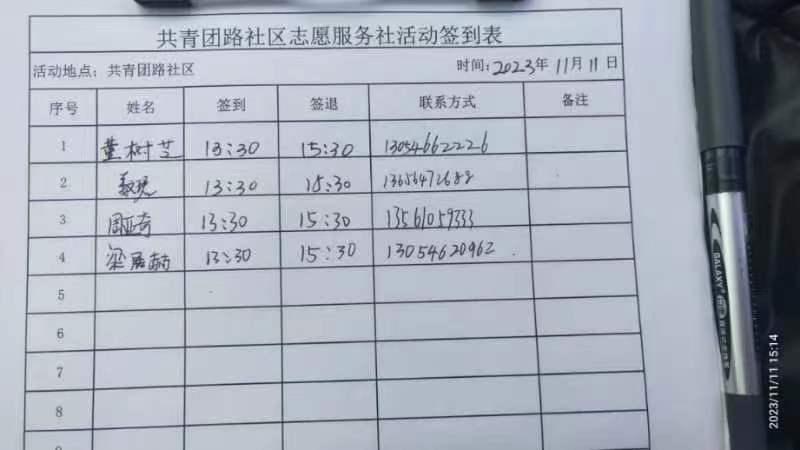 共青团路社区志愿服务社活动签到表
活动地点：共青团路社区 时间：2023年 11月 11日
序号 姓名 签到 签退 联系方式 备注
1 董树芝 13:30 15:30 13054662226
2 13:30 15:30 13656472688
3 周亚奇 13:30 15:30 13561059333
4 梁 13:30 15:30 13054620962
5
6
7
8
GALAXY
2023/11/11 15:14